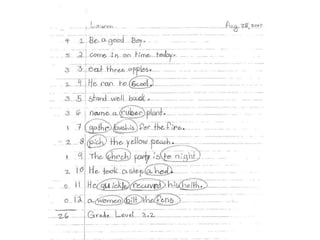 Lauren Aug 28, 2007
4 1 Be a good Boy.
5 2 come in on time today.
3 3 eat three apples.
2 4 He ran to Scool.
3 5 stand well back.
3 6 name a ruber plant.
1 7 gathr for the fire.
2 8 pich the yellow peach.
1 9 The chrch party is to night
2 10 He took a step a hed.
0 11 He his helth.
0 12 a women bilt the fens.
26 Grade Level 2.2